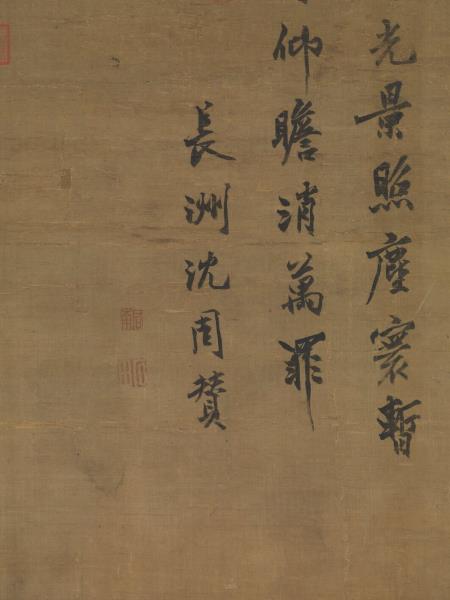 光景照塵寰暫
仰瞻消萬罪
長洲沈周贊